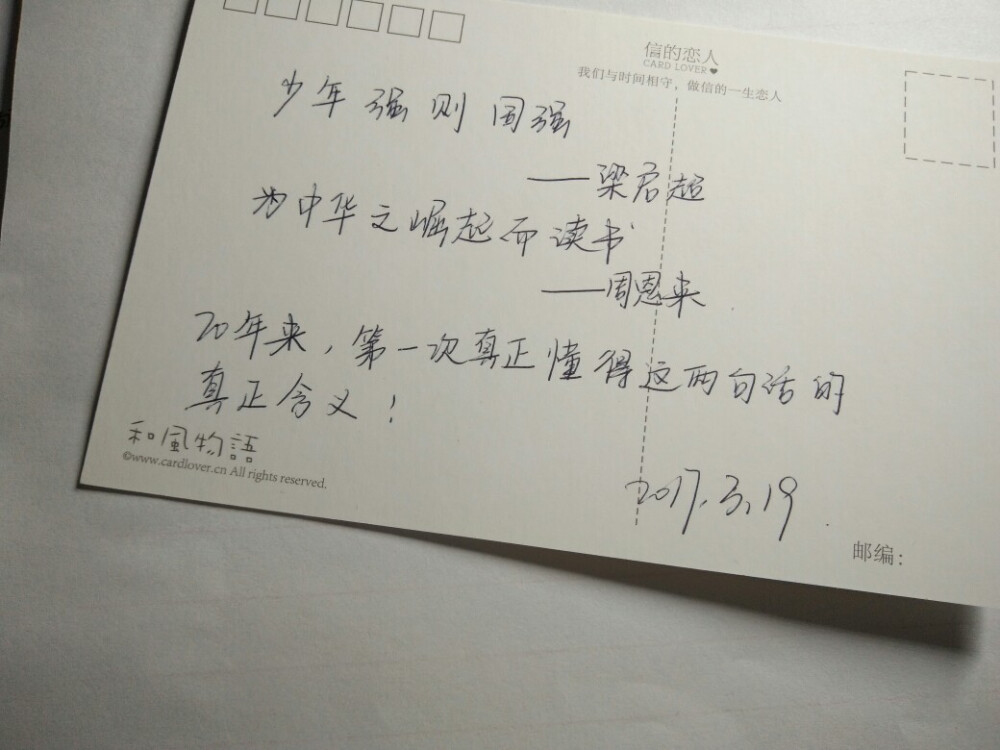 信的恋人
CARD LOVER
我们与时间相守，做信的一生恋人
少年强则国强
——梁启超
为中华之崛起而读书
——周恩来
20年来，第一次真正懂得这两句话的
真正含义！
和風物語
©www.cardlover.cn All rights reserved.
2017.3.19
邮编：